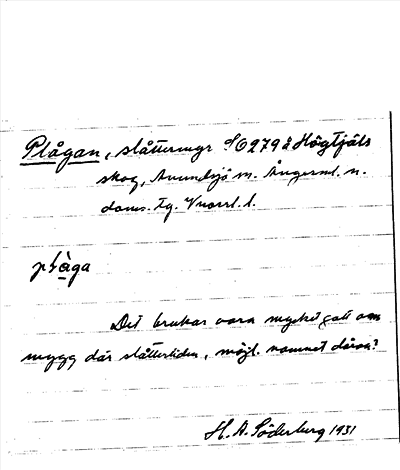 Plågan, slåttermyr S/O 279 å Högtjäls
skog, Anundsjö sn. Ångerml. n.
doms. tg. Vnorrl. l.
plåga
Det brukar vara mycket gott om
mygg där slåttertiden, möjl. namnet därav?
H. A. Söderberg 1931